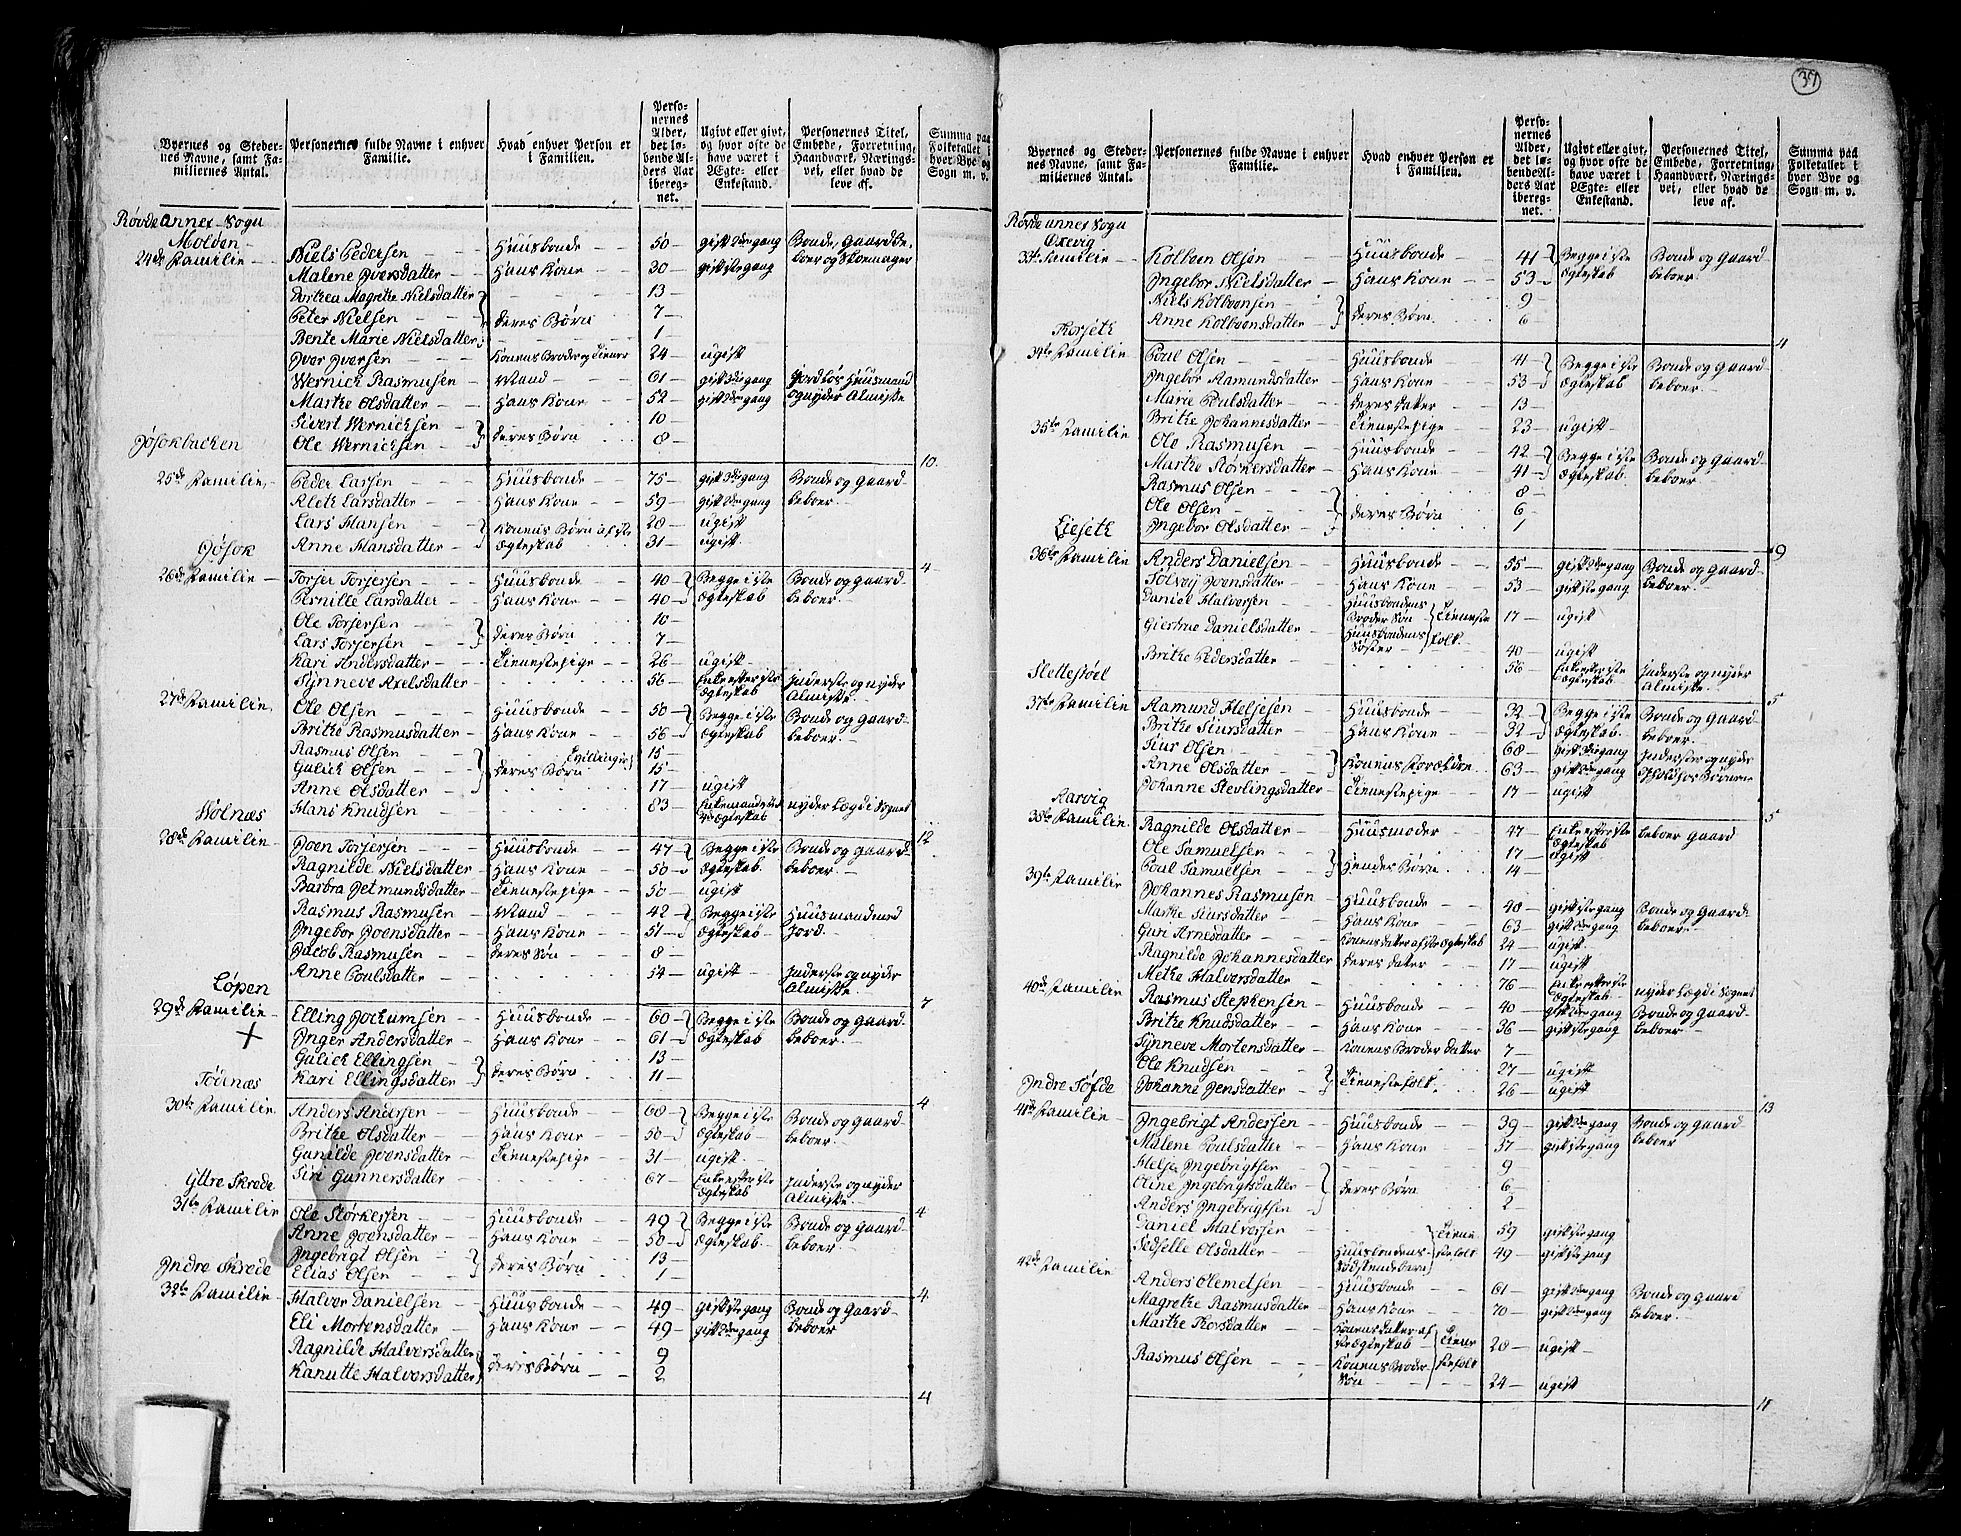 37
Byernes og Steder-nes Navne, samt Fa-miliernes Antal.
Personernes fulde Navne i enhver Familie.
Hvad enhver Person er i Familien.
Perso-nernes Alder, det lø-bende Al-ders Aar iberegnet.
Ugivt eller givt, og hvor ofte de have været i Egte- eller Enkestand.
Personernes Titel, Embede, Forretning, Haandværk, Nærings-vei, eller hvad de leve af.
Summa paa Folketallet i hver Bye og Sogn m. v.
Røvde annex-Sogn
Molden
24de Familie
Niels Pedersen Huusbonde 50 gift 2den gang Bonde, Gaardbe-
Malene Iversdatter Hans Kone 30 gift 1ste gang boer og Skoemager
Dorthea Magrethe Nielsdatter 13
Peter Nielsen 7 deres Børn
Bente Marie Nielsdatter 1
Iver Iversen Konens Broder og Tiener 24 ugift
Wernich Rasmusen Mand 61 gift gang Jordløs Huusmand
Marthe Olsdatter Hans Kone 52 gift 2den gang og nyder Almisse
Sivert Wernichsen 10
Ole Wernichsen deres Børn 8
10.
Jøsokbacken
25de Familie
Peder Larsen Huusbonde 75 gift gang Bonde og Gaard-
Aleth Larsdatter Hans Kone 59 gift 2den gang beboer
Lars Hansen Konens Børn af 1ste 28 ugift
Anne Hansdatter Ægteskab 31 ugift
4
Jøsok
26de Familie
Torger Torgersen Huusbonde 40 Begge i 1ste Bonde og Gaard-
Pernille Larsdatter Hans Kone 40 Ægteskab beboer
Ole Torgersen 10
Lars Torgersen deres Børn 7
Kari Andersdatter Tienestepige 26 ugift
Synneve Axelsdatter 56 Enke efter 1ste Ægteskab Inderste og nyder Almisse
27de Familie
Ole Olsen Huusbonde 50 Begge i 1ste Bonde og Gaard-
Brithe Rasmusdatter Hans Kone 56 Ægteskab beboer
Rasmus Olsen Tvillinger 15
Gulich Olsen deres Børn 15
Anne Olsdatter 17 ugift
Hans Knudsen 83 Enkemand Ægteskab nyder Lægd i Sognet
12
Wolnæs
28de Familie
Joen Torgersen Huusbonde 47 Begge i 1ste Bonde og Gaard-
Ragnilde Nielsdatter Hans Kone 50 Ægteskab beboer
Barbra Jetmundsdatter Tienestepige 50 ugift
Rasmus Rasmusen Mand 42 Begge i 1ste Huusmand med
Ingebor Joensdatter Hans Kone 51 Ægteskab Jord
Jacob Rasmusen deres Søn 8
Anne Poulsdatter 54 ugift Inderste og nyder Almisse
7
Løpen
29de Familie
+
Elling Jochumsen Huusbonde 60 Begge i 1ste Bonde og Gaard-
Inger Andersdatter Hans Kone 61 Ægteskab beboer
Gulich Ellingsen 13
Kari Ellingsdatter deres Børn 11
4
Tødenæs
30te Familie
Anders Andersen Huusbonde 68 Begge i 1ste Bonde og Gaard-
Brithe Olsdatter Hans Kone 50 Ægteskab beboer
Gunilde Joensdatter Tienestepige 31 ugift
Siri Gunnersdatter 67 Enke efter 1ste Ægteskab Inderste og nyder Almisse
4
Yttre Skrede
31te Familie
Ole Størkersen Huusbonde 49 Begge i 1ste Bonde og Gaard-
Anne Joensdatter Hans Kone 50 Ægteskab beboer
Ingebrigt Olsen 13
Elias Olsen deres Børn 1
4
Indre Skrede
32te Familie
Halvor Danielsen Huusbonde 49 gift 1ste gang Bonde og Gaard-
Eli Mortensdatter Hans Kone 49 gift 2den gang beboer
Ragnilde Halversdatter 9
Kanutte Halversdatter deres Børn 2
4
Byernes og Steder-nes Navne, samt Fa-miliernes Antal.
Personernes fulde Navne i enhver Familie.
Hvad enhver Person er i Familien.
Perso-nernes Alder, det lø-bende Al-ders Aar iberegnet.
Ugivt eller givt, og hvor ofte de have været i Egte- eller Enkestand.
Personernes Titel, Embede, Forretning, Haandværk, Nærings-vei, eller hvad de leve af.
Summa paa Folketallet i hver Bye og Sogn m. v.
Røvde annex Sogn
Oxevig
33te Familie
Kolboen Olsen Huusbonde 41 Begge i 1ste Bonde og Gaard
Ingebor Nielsdatter Hans Kone 53 Ægteskab beboer
Niels Kolboensen 9
Anne Kolboensdatter deres Børn 6
4
Thorseth
34te Familie
Poul Olsen Huusbonde 41 Begge i 1ste Bonde og Gaard-
Ingebor Aamundsdatter Hans Kone 53 Ægteskab beboer
Marie Poulsdatter deres Datter 13
Brithe Johannesdatter Tienestepige 23 ugift
35te Familie
Ole Rasmusen Huusbonde 42 Begge i 1ste Bonde og Gaard-
Marthe Størkersdatter Hans Kone 41 Ægteskab beboer
Rasmus Olsen 8
Ole Olsen deres Børn 6
Ingebor Olsdatter 1
9
Lieseth
36te Familie
Anders Danielsen Huusbonde 55 gift 2den gang Bonde og Gaard-
Solvøy Joensdatter Hans Kone 53 gift 1ste gang beboer
Daniel Halvorsen Huusbondens Broder Søn Tieneste 17 ugift
Giertrue Danielsdatter Huusbondens Søster folk 40 ugift
Brithe Pedersdatter 56 Enke efter 1ste Ægteskab Inderste og nyder Almisse
5
Slettestøel
37te Familie
Aamund Helgesen Huusbonde 32 Begge i 1ste Bonde og Gaard-
Brithe Siursdatter Hans Kone 32 Ægteskab beboer
Siur Olsen 68 gift gang Inderster og nyder
Anne Olsdatter Konens Forældre 63 gift 2den gang
Johanne Stevlingsdatter Tienestepige 17 ugift
5
Aarvig
38te Familie
Ragnilde Olsdatter Huusmoder 47 Enke efter 1ste Ægteskab beboer Gaard
Ole Samuelsen 17 ugift
Poul Samuelsen Hendes Børn 14
39te Familie
Johannes Rasmusen Huusbonde 48 gift 1ste gang Bonde og Gaard-
Marthe Siursdatter Hans Kone 63 gift 2den gang beboer
Guri Arnesdatter Konens datter af 1ste Ægteskab 24 ugift
Ragnilde Johannesdatter deres datter 17 ugift
Methe Halversdatter 76 Enke efter 1ste Ægteskab nyder Lægd i Sognet
40de Familie
Rasmus Stephensen Huusbonde 40 gift 2den gang Bonde og Gaard-
Brithe Knudsdatter Hans Kone 36 gift 1ste gang beboer
Synneve Mortensdatter Konens Broder datter 7
Ole Knudsen 27 ugift
Johanne Jensdatter Tienestefolk 26 ugift
13
Indre Tøfde
41de Familie
Ingebrigt Andersen Huusbonde 39 gift 2den gang Bonde og Gaard
Malene Poulsdatter Hans Kone 37 gift 1ste gang beboer
Helge Ingebrigtsen 9
Eline Ingebrigtsdatter deres Børn 6
Anders Ingebrigtsen 2
Daniel Halvorsen Tiene 59 gift 1ste gang
Sedselle Olsdatter Huusbondens Sødskendebarn stefolk 49 gift 1ste gang
42de Familie
Anders Olemelsen Huusbonde 61 gift 2den gang Bonde og Gaard
Magrethe Rasmusdatter Hans Kone 70 gift 2den gang beboer
Marthe Thorsdatter Konens datter af 1ste Ægteskab Tiene 28 ugift
Rasmus Olsen Konens Broder Søn stefolk 24 ugift
11